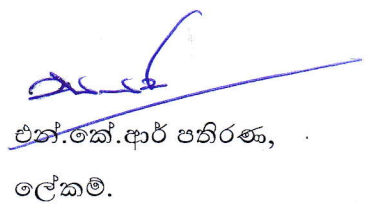 එන්.කේ.ආර් පතිරණ,
ලේකම්.